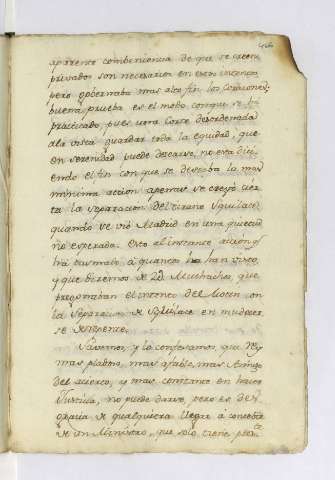 aparente combeniencia de que se creen
privados son necesarios en estos
pero gobernaba mas alto fin los Corazones;
buena prueba es el modo conque se ha
practicado, pues una Corte desordenada
a la vista guardar toda la equidad, que
en serenidad puede desearse, no esta dici
endo el fin con que se deseaba la mas
minima accion, apenas se creyó cier
ta la separacion del tirano Squilace
quando se vió Madrid en una quietud
no esperada. Esto al instante
há pasmado a quantos lo han visto,
y que diremos de 2U Muchachos, que
pregonaban el intento del Motin con
la Separacion de Squilace en mudarse
se
Savemos, y lo confesamos que Rey
mas piadoso, mas afable, mas Amigo
del acierto, y mas constante en hacer
Justicia, no puede darse, pero es des
gracia de qualquiera llegar á concebir
de un Ministro, que solo tiene